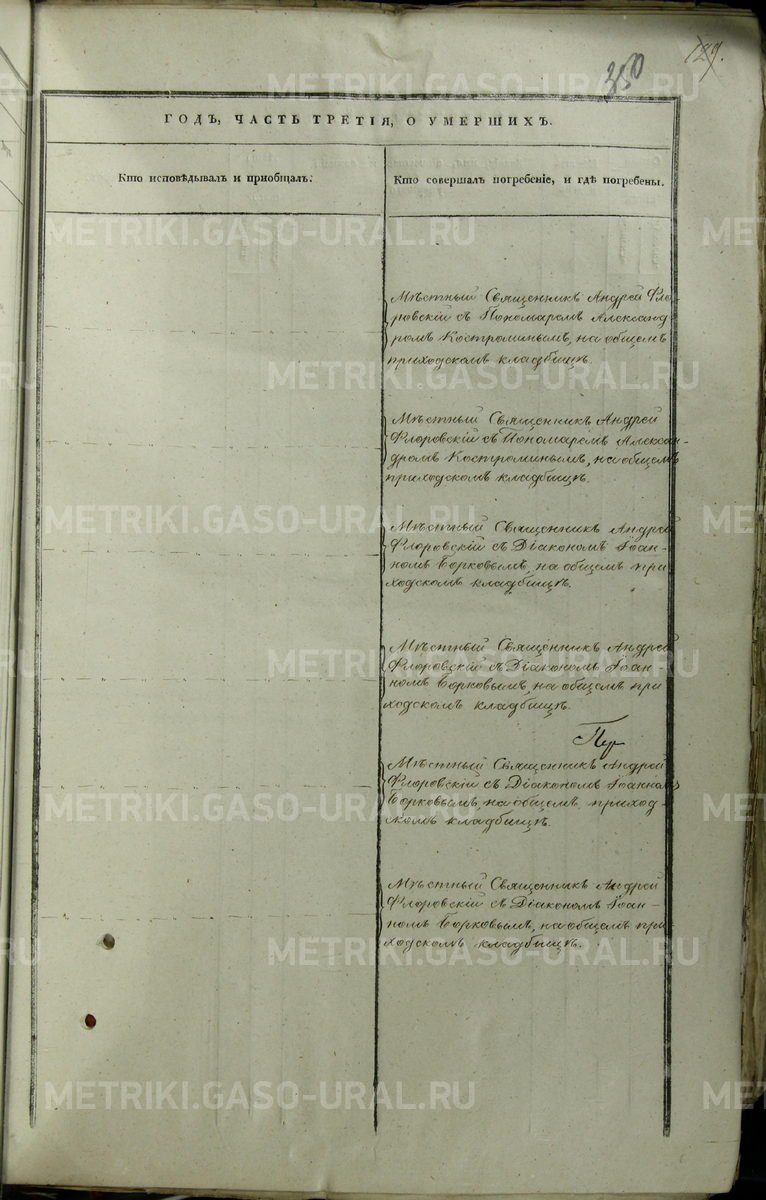 127.
350
ГОДЪ, ЧАСТЬ ТРЕТІЯ, О УМЕРШИХЪ.
Кто исповѣдывалъ и приобщалъ:
Кто совершалъ погребеніе, и гдѣ погребены.
Мѣстный Священникъ Андрей Фло-
ровскій съ Пономаремъ Александ
ромъ Костроминымъ, на общемъ
приходскомъ кладбищѣ.
Мѣстный Священникъ Андрей
Флоровскій съ Пономаремъ Алексан-
дромъ Костроминымъ, на общемъ
приходскомъ кладбищѣ.
Мѣстный Священникъ Андрей
Флоровскій съ Діакономъ Іоан-
номъ Борковымъ, на общемъ при
ходскомъ кладбищѣ.
Мѣстный Священникъ Андрей
Флоровскій съ Діакономъ Іоан-
номъ Борковымъ, на общемъ при
ходскомъ кладбищѣ.
Мѣстный Священникъ Андрей
Флоровскій съ Діакономъ Іоанномъ
Борковымъ, на общемъ приход-
скомъ кладбищѣ.
Мѣстный Священникъ Андрей
Флоровскій съ Діакономъ Іоан-
номъ Борковымъ, на общемъ при
ходскомъ кладбищѣ.
METRIKI.GASO-URAL.RU